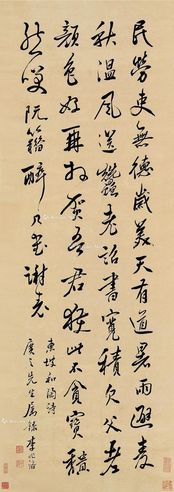 民勞吏無德歲美天有道暑雨避麥
秋溫風送蠶老詔書寬積欠父老
顏色好再拜賀吾君獲此不貪寶頹
然笑阮籍醉几書謝表
東坡和陶詩
先生屬 李兆洛